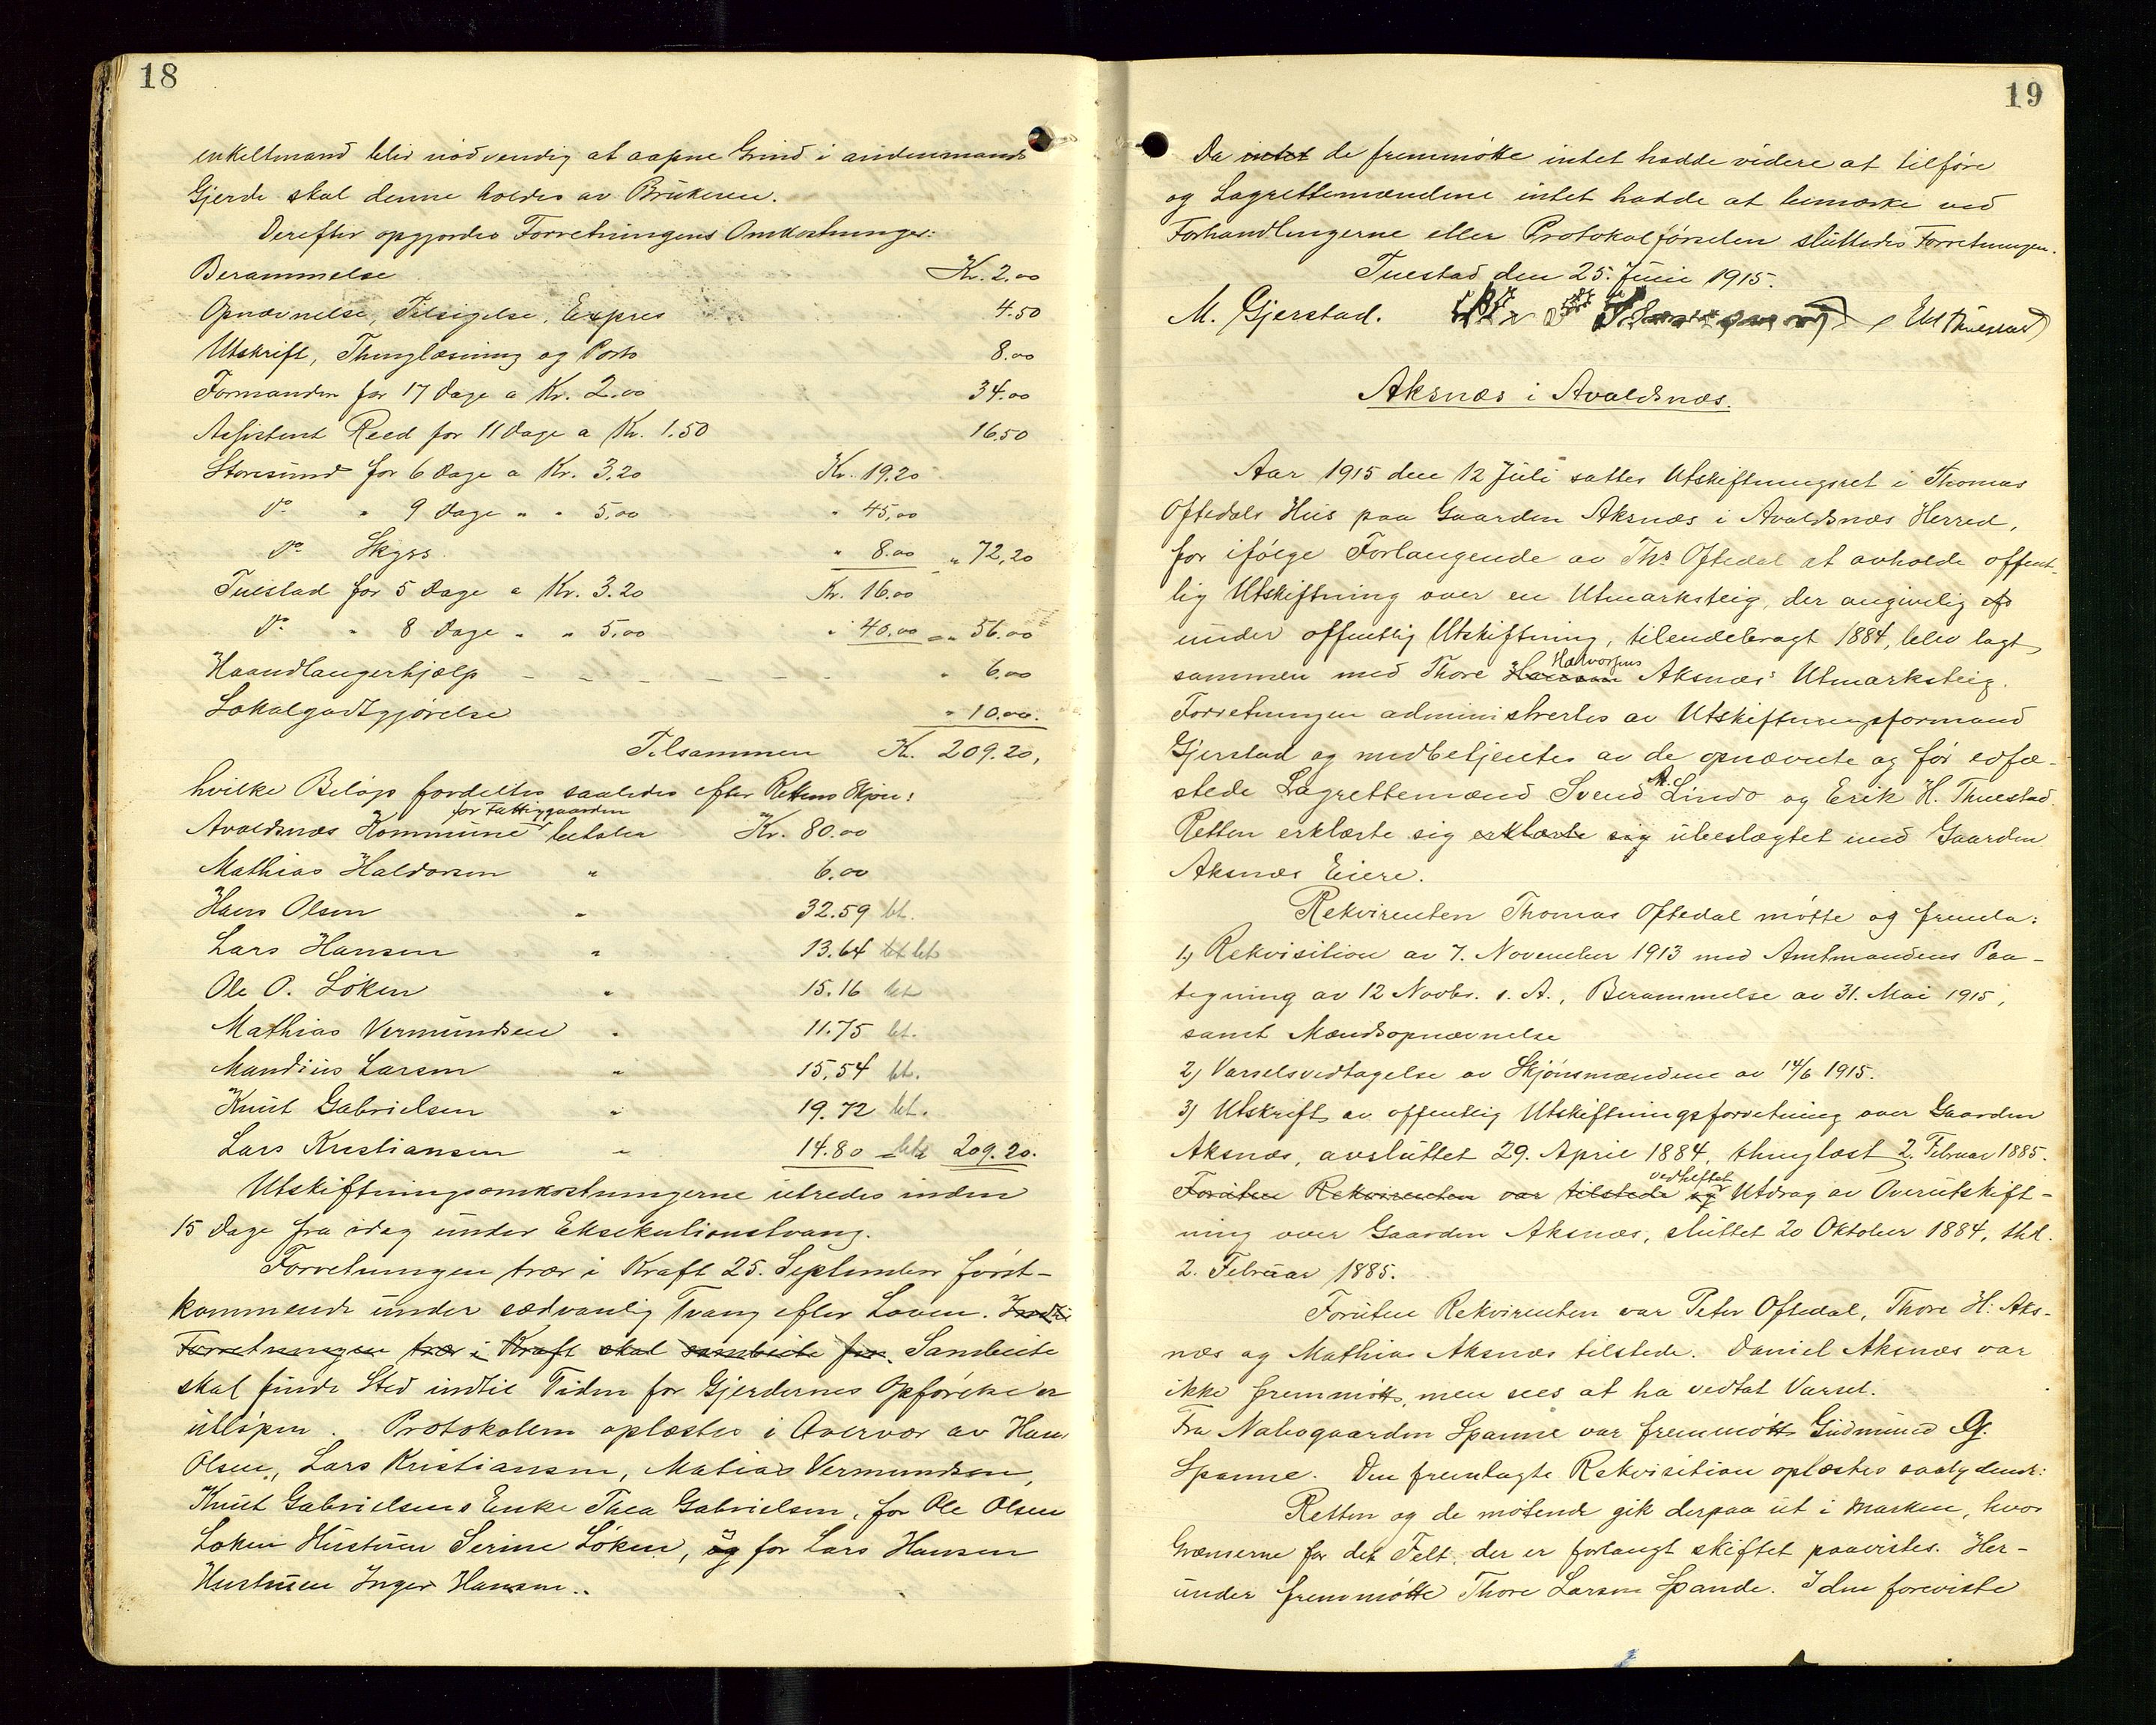 18
enkeltmand blir nödvendig at aapne Grind i andenmands
Gjerde skal denne holdes av Brukeren.
Derefter opgjordes Forretningens Omkostninger:
Berammelse Kr. 2.00
Opnævnelse, Tilsigelse, Expres 4.50
Utskrift, Thinglæsning og Porto 8.00
Formanden for 17 Dage a Kr. 2.00 34.00
Assistent Reed for 11 Dage a Kr. 1.50 16.50
Storesund for 6 Dage a Kr. 3.20 Kr. 19.20
do " 9 Dage " " 5.00 " 45.00
do Skyss " 8.00 " 72,20
Tuestad for 5 Dage a Kr. 3.20 Kr. 16.00
do " 8 Dage " " 5.00 " 40.00 " 56.00
Haandlangerhjælp - - - - - - " 6.00
Lokalgodtgjörelse " 10.00.
Tilsammen Kr. 209.20,
hvilke Beløp fordeltes saaledes efter Rettens Skjön:
for Fattiggaarden
Avaldsnæs Kommune betaler Kr. 80.00
Mathias Haldorsen " 6.00
Hans Olsen " 32.59 bt.
Lars Hansen " 13.64 bt bt
Ole O. Löken " 15.16 bt
Mathias Vermundsen " 11.75 bt.
Mandius Larsen " 15.54 bt.
Knut Gabrielsen " 19.72 bt.
Lars Kristiansen " 14.80 bt 209.20.
Utskiftningsomkostningerne utredes inden
15 Dage fra idag under Eksekutionstvang.
Forretningen trær i Kraft 25. September först-
kommende under sædvanlig Tvang efter Loven. Indtil
Forretningen trær i Kraft skal sambeite for. Sambeite
skal finde Sted indtil Tiden for Gjerdernes Opförelse er
utløpen. Protokollen oplæstes i Overvær av Hans
Olsen, Lars Kristiansen, Matias Vermundsen,
Knut Gabrielsens Enke Thea Gabrielsen, for Ole Olsen
Løken Hustruen Serine Löken, og for Lars Hansen
Hustruen Inger Hansen.
19
Da intet de fremmötte intet hadde videre at tilföre
og Lagrettemændene intet hadde at bemærke ved
Forhandlingerne eller Protokolförselen sluttedes Forretningen.
Tuestad den 25. Juni 1915.
M. Gjerstad.
Aksnæs i Avaldsnæs.
Aar 1915 den 12 Juli sattes Utskiftningsret i Thomas
Oftedals Hus paa Gaarden Aksnæs i Avaldsnæs Herred,
for ifölge Forlangende av Ths. Oftedal at avholde offent-
lig Utskiftning over en Utmarksteig, der angivelig
under offentlig Utskiftning, tilendebragt 1884, blev lagt
Halvorsens
sammen med Thore Aksnæs' Utmarksteig.
Forretningen administrertes av Utskiftningsformand
Gjerstad og medbetjentes av de opnævnte og för edfæ-
stede Lagrettemænd Svend A. Lindö og Erik H. Thuestad.
Retten erklærte sig erklærte sig ubeslægtet med Gaarden
Aksnæs Eiere.
Rekvirenten Thomas Oftedal mötte og fremla:
1) Rekvisition av 7. November 1913 med Amtmandens Paa-
tegning av 12 Novbr. s. A., Berammelse av 31. Mai 1915,
samt Mændsopnævnelse
2) Varselsvedtagelse av Skjönsmændene av 14/6 1915.
3) Utskrift av offentlig Utskiftningsforretning over Gaarden
Aksnæs, avsluttet 29. April 1884, thinglæst 2. Februar 1885.
vedheftet
Foruten Rekvirenten var tilstede og Utdrag av Overutskift-
ning over Gaarden Aksnæs, sluttet 20 Oktober 1884, thl.
2. Februar 1885.
Foruten Rekvirenten var Peter Oftedal, Thore H. Aks-
næs og Mathias Aksnæs tilstede. Daniel Aksnæs var
ikke fremmött, men sees at ha vedtat Varsel.
Fra Nabogaarden Spanne var fremmött Gudmund G.
Spanne. Den fremlagte Rekvisition oplæstes saalydende:
Retten og de mötende gik derpaa ut i Marken, hvor
Grænserne for det Felt, der er forlangt skiftet paavistes. Her-
under fremmötte Thore Larsen Spande. I den foreviste